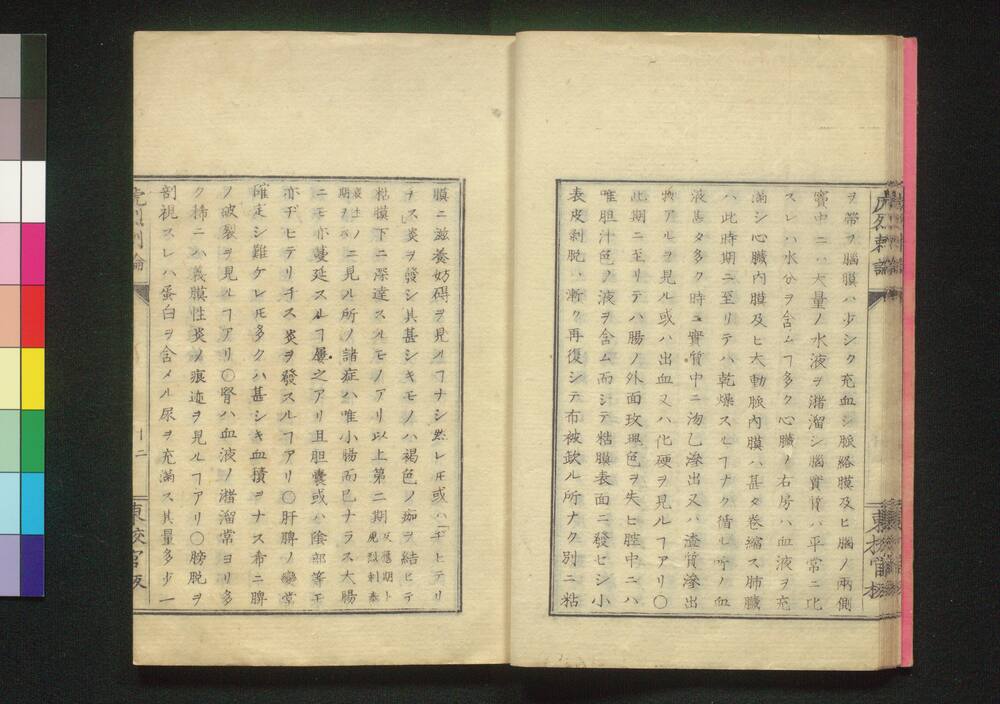 ヲ帶フ腦膜ハ少シク充血シ脈絡膜及ヒ腦ノ兩側
竇中ニハ大量ノ水液ヲ瀦溜シ腦實質ハ平常ニ比
スレハ水分ヲ含ムヿ多ク心臓ノ右房ハ血液ヲ充
滿シ心臓內膜及ヒ大動脈內膜ハ甚タ卷縮ス肺臓
ハ此時期ニ至リテハ乾燥スヒヿナク循レ所ノ血
液甚タ多ク時ニ實質中ニ沕乙滲出又ハ渣質滲出
物アルヲ見ル或ハ出血又ハ化硬ヲ見ルヿアリ〇
此期ニ至リテハ腸ノ外面玫瑰色ヲ失ヒ腔中ニハ
唯胆汁色ノ液ヲ含ム而シテ粘膜表面ニ發セシ小
表皮剥脫ハ漸ク再復シテ布被欤ル所ナク別ニ粘
虎烈剌論
東校官板
膜ニ滋養妨碍ヲ見ルヿナシ然レ𪜈或ハ「ヂヒテリ
チス炎ヲ發シ其甚シキモノハ褐色ノ痂ヲ結ヒテ
粘膜下ニ深達スルモノアリ以上第二期反應期ト虎烈剌泰
衰性ノ期ヲ云ニ見ル所ノ諸症ハ唯小腸而已ナラス大腸
ニモ亦蔓延スルヿ屢之アリ且胆囊或ハ陰部等モ
亦ヂヒテリチス炎ヲ發スルヿアリ〇肝脾ノ變常
確定シ難ケレ𪜈多クハ甚シキ血積ヲナス希ニ脾
ノ破裂ヲ見ルヿアリ〇腎ハ血液ノ瀦溜常ヨリ多
ク稀ニハ義膜性炎ノ痕迹ヲ見ルヿアリ〇膀脱ヲ
剖視スレハ蛋白ヲ含メル尿ヲ充滿ス其量多少一
虎烈剌論
十二
東校官板